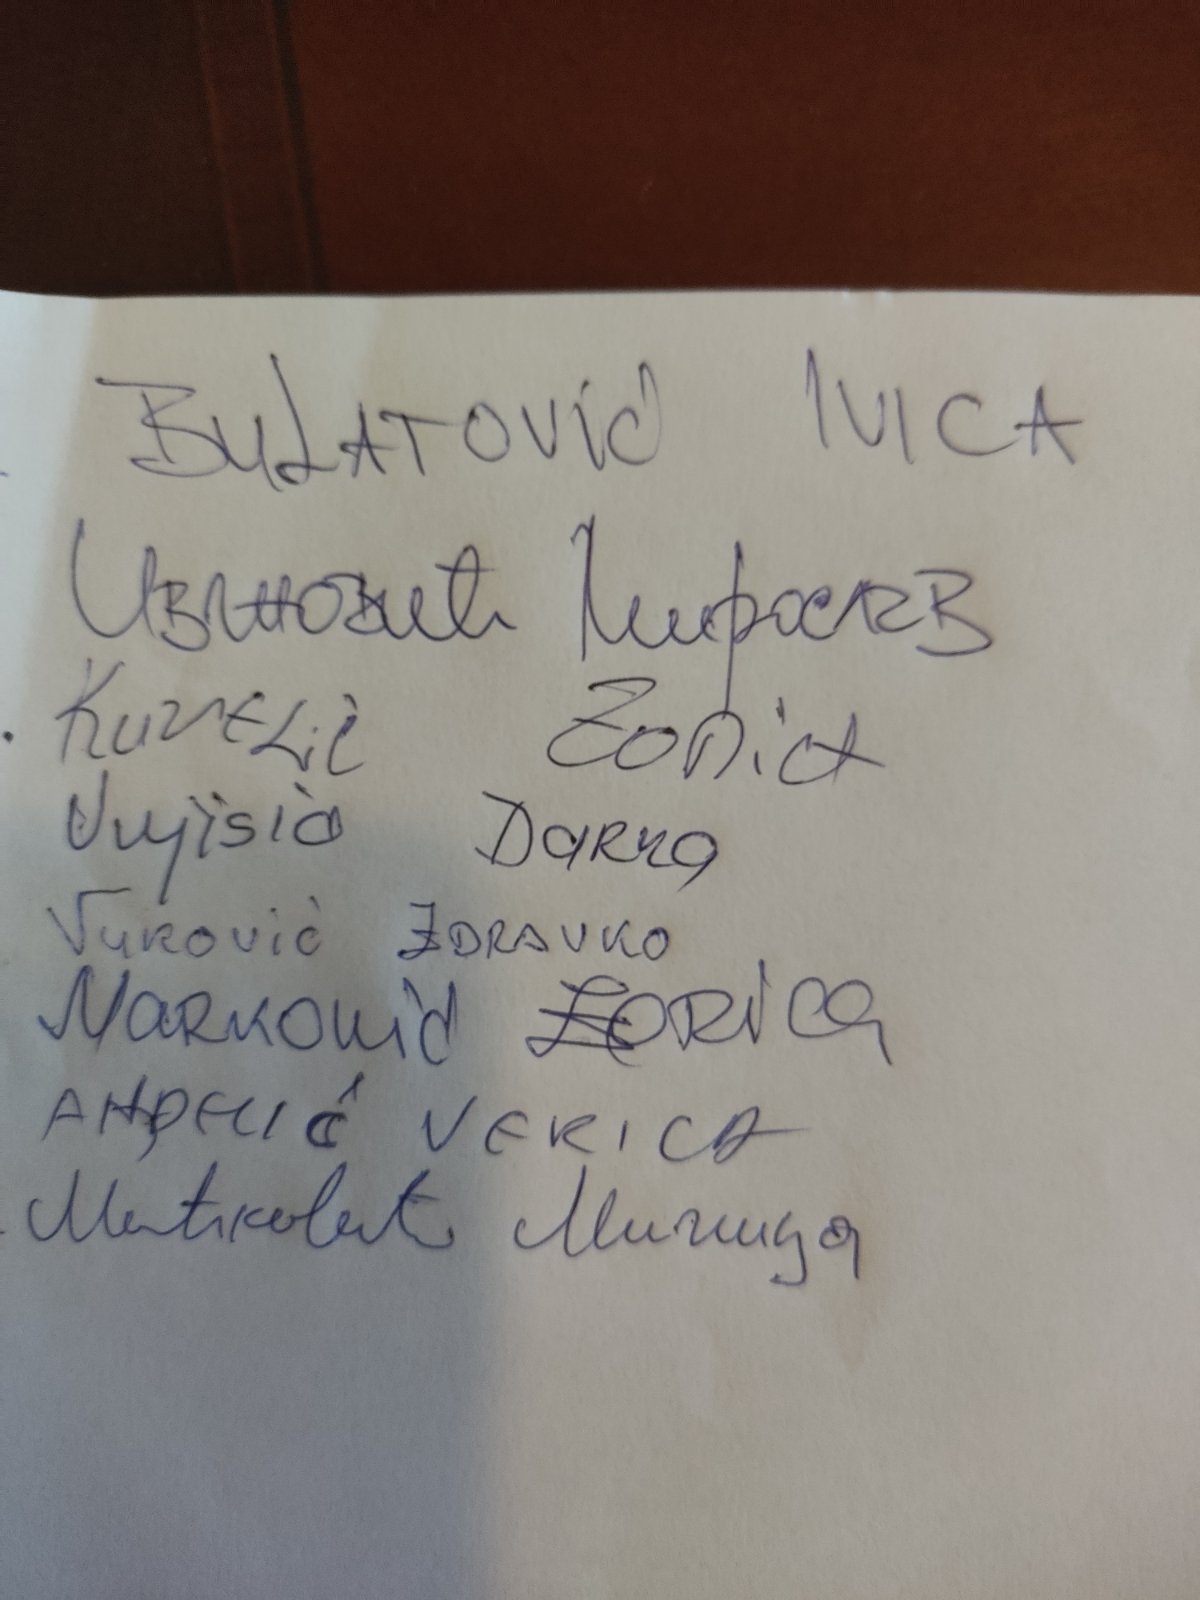 BULATOVIĆ IVICA
Ивановић Мирослав
Kurelić Zorica
Vujisić Darko
Vuković ZDRAVKO
MARKOVIĆ ZORICA
ANĐELIĆ VERICA